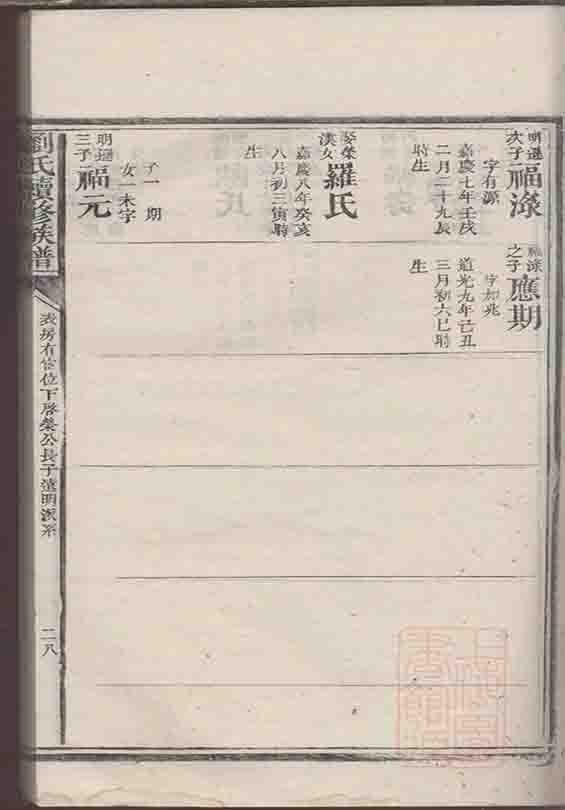 明選
次子
福淥
字有源
嘉慶七年壬戌
二月二十九辰
時生
羅氏
嘉慶八年癸亥
八月初三寅時
生
子一 期
女一未字
明選
三子
福元
福淥
之子
應期
字如兆
道光九年己丑
三月初六巳時
生
劉氏續修族譜
房有富位下啓榮公長子遠明派系
二八